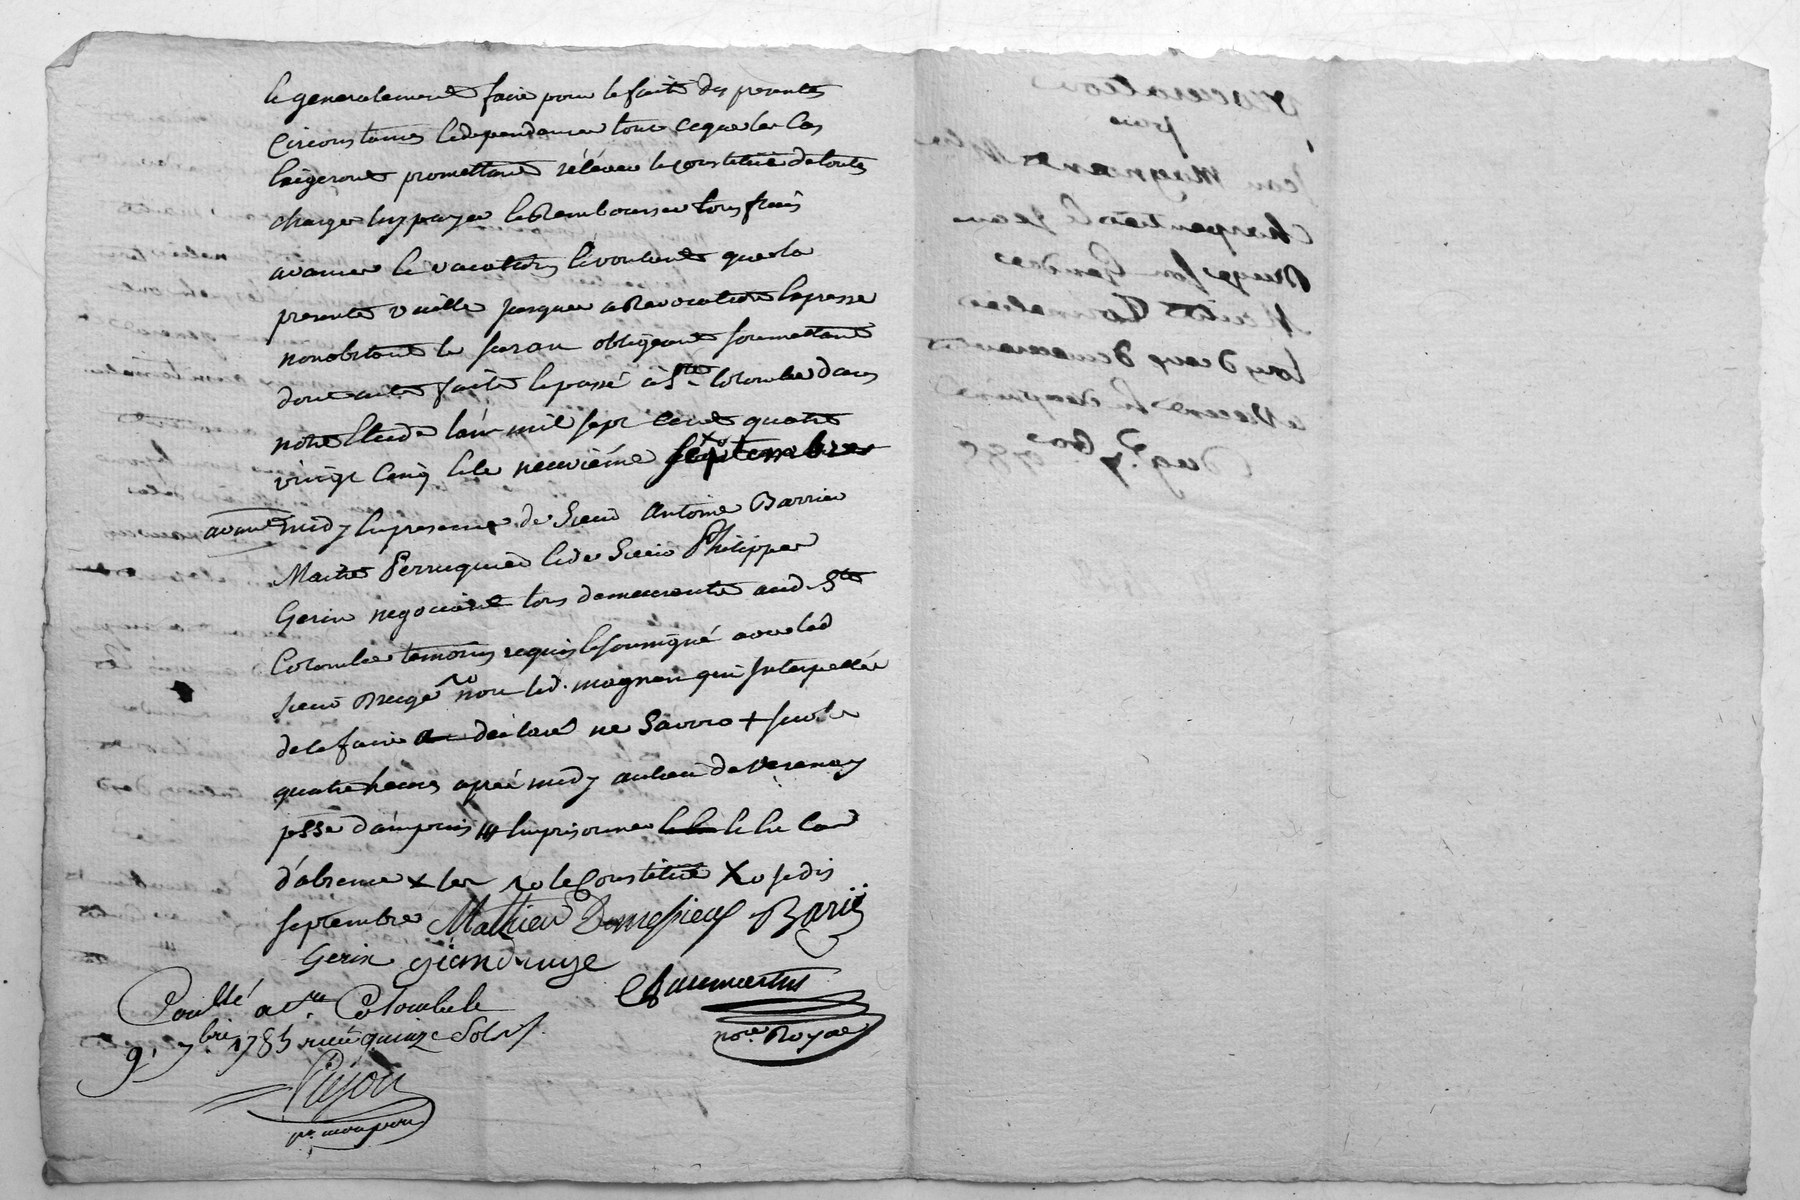 et generalement faire pour le fait des presentes
circonstances et dependances tout ce que les cas
exigeront promettant rélever le constitué de toutes
charges luy payer et rembourser tous frais
avances et vacations et voulant que la
presente vaille jusques a revocation expresse
nonobstant le suran obligeant soumettant
dont acte fait et passé à Ste Colombe dans
notre Etude l'an mil sept cent quatre
vingt cinq et le neuvième septembre
avant midy en presence de Sieur Antoine Barrier
Maitre Perruquier et de Sieur Philippe
Gerin negociant tous demeurants aud. Ste
Colombe temoins requis et soussigné avec led
Sieur Bruge non led. magnan qui Interpellée
de le faire a déclaré ne Savoir + sur les
quatre heures après midy au lieu de Verenay
psse d'ampuis /// emprisonner et en cas
d'absence x les ro le Constitué X ro je dis
septembre Mathieu Dumesnieux Barié
Gerin jean Bruge
nore Royal
Conllé a Ste Colombe le
9. 7bre 1785 recu quinze Sols
Pujon
procuration
pour
jean Magnand
charpentier et jean
Bruge son Gendre
tous deux demeurants
1785